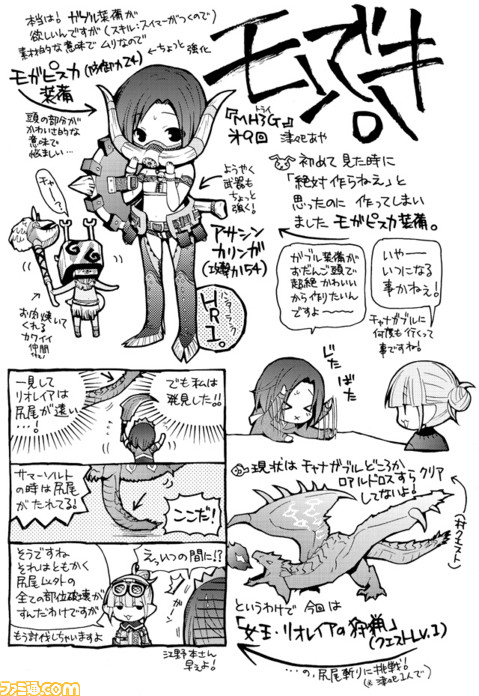 モンでき。
『MH3G』トライ
第9回 津々見あや
本当は! ガブル装備が
欲しいんですが(スキル:スイマーがつくので)
素材的な意味でムリなので
←ちょっと強化
モガピスカ(防御力24)
装備
頭の部分が
かわいさ的な
意味で
悩ましい…
ようやく
武器も
ちょっと
強く!
アサシン
カリンガ
(攻撃力154)
チャ?
お肉焼いて
くれる
カワイイ
仲間
HR1。
初めて見た時に
「絶対作らねぇ」と
思ったのに作ってしまい
ました モガピスカ装備。
ガブル装備が
おだんご頭で
超絶かわいい
から作りたいん
ですよ〜〜〜
いやー
いつになる
事かねぇ!
チャナガブルに
何度も行くって
事ですね!
じた
ばた
一見して
リオレイアは
尻尾が遠い
…!
でも私は
発見した!!
サマーソルト
の時は尻尾
がたれてる!
ここだ!
そうですね
それはともかく
尻尾以外の
全ての部位破壊が
すんだわけですが
もう討伐しちゃいますよ
えっいつの間に!?
江野本さん
早えよ!
現状はチャナガブルどころか
ロアルドロスすらクリア
してないよ!
(村クエスト)
というわけで 今回は
「女王・リオレイアの狩猟」
(クエストLv.1)
…の、尻尾斬りに挑戦!
(※津々見1人で)
ファミ通.com